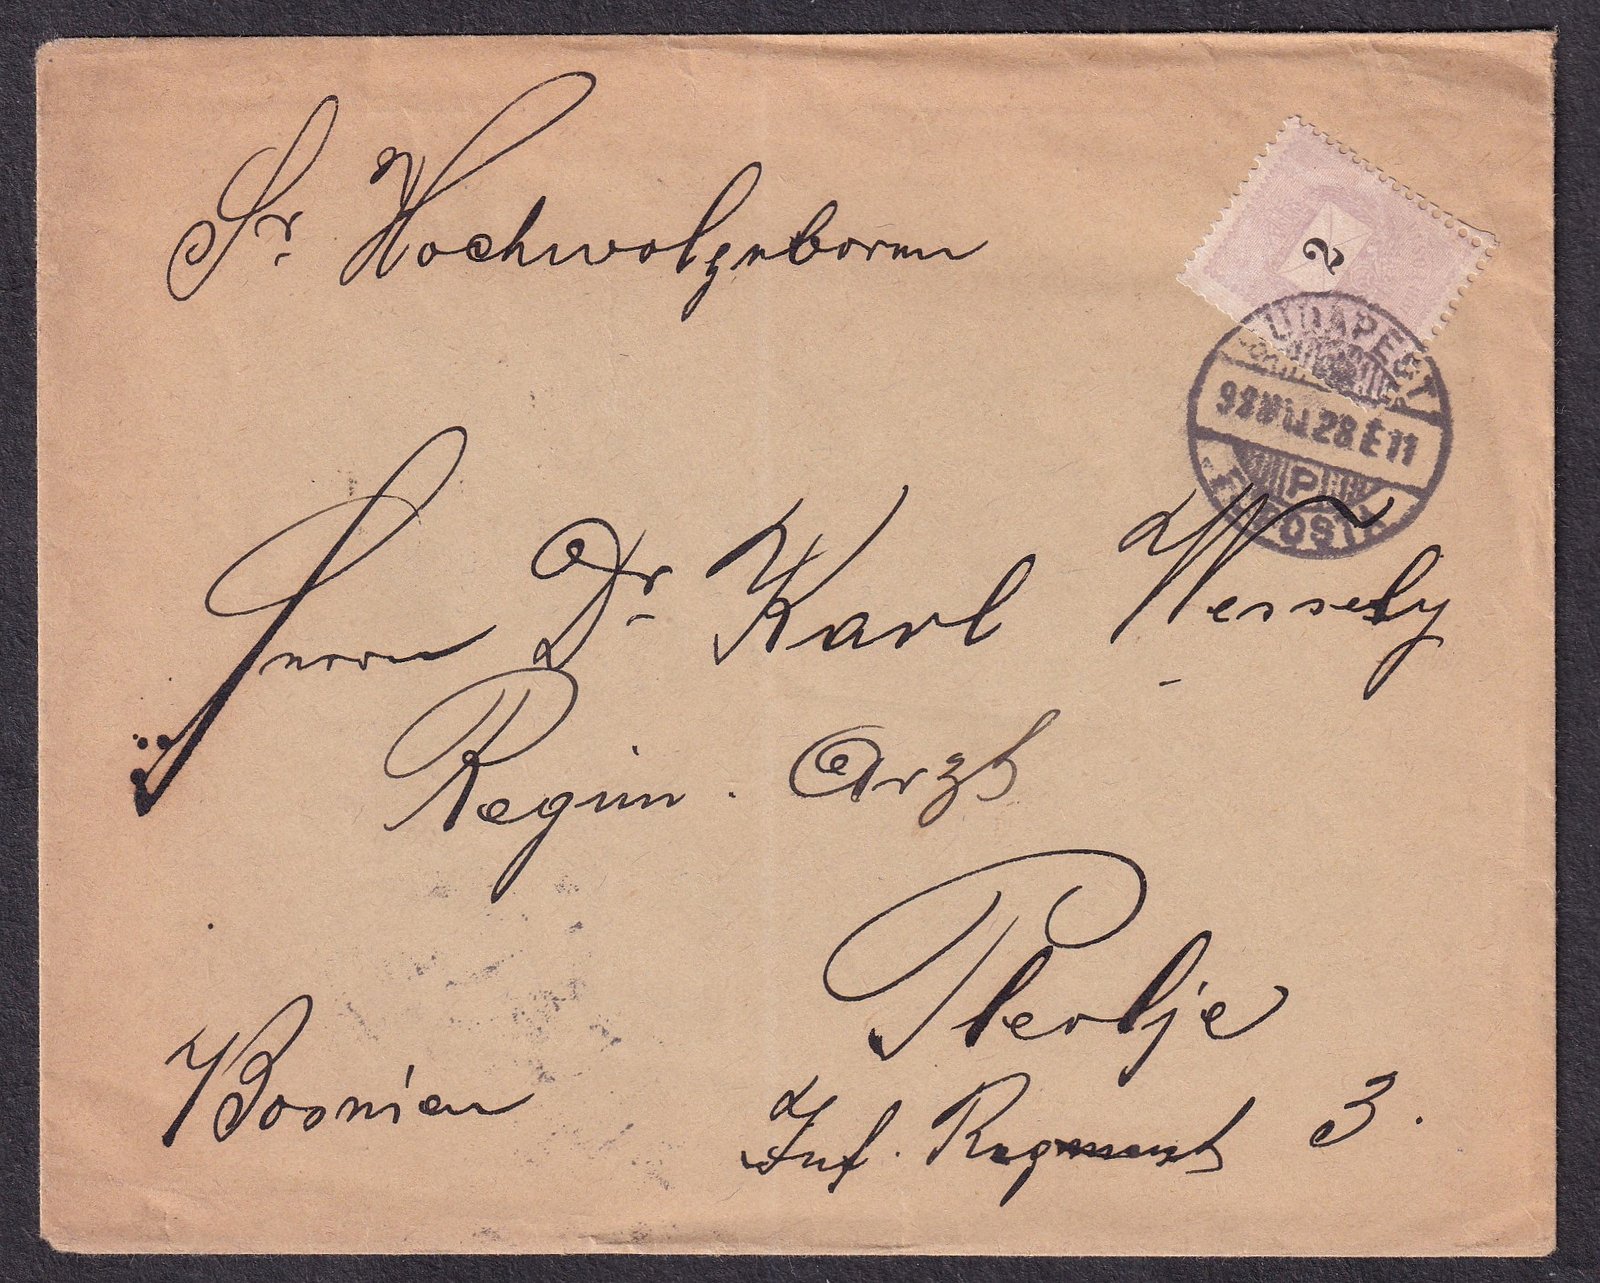 Sr. Hochwolgeboren
2
BUDAPEST
98 28 E 11
P
FŐPOSTA
Herrn Dr. Karl Wessely
Regim. Arzt
Plevlje
Bosnien
Inf. Regiment 3.